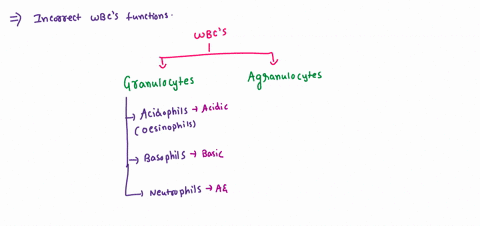 ⇒ Incorrect WBC's functions.
WBC's
Granulocytes
Agranulocytes
→ Acidophils → Acidic
(oesinophils)
→ Basophils → Basic
→ Neutrophils → A&